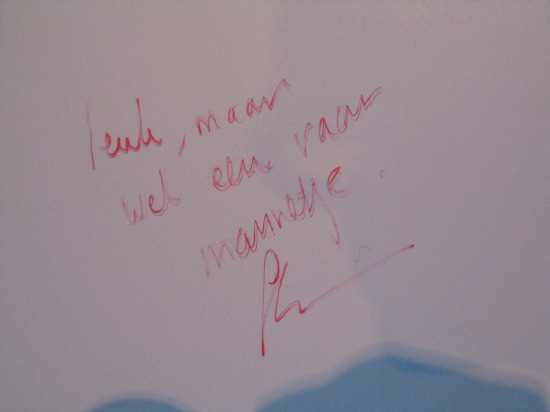 leuk, maar
wel een raar
mannetje.